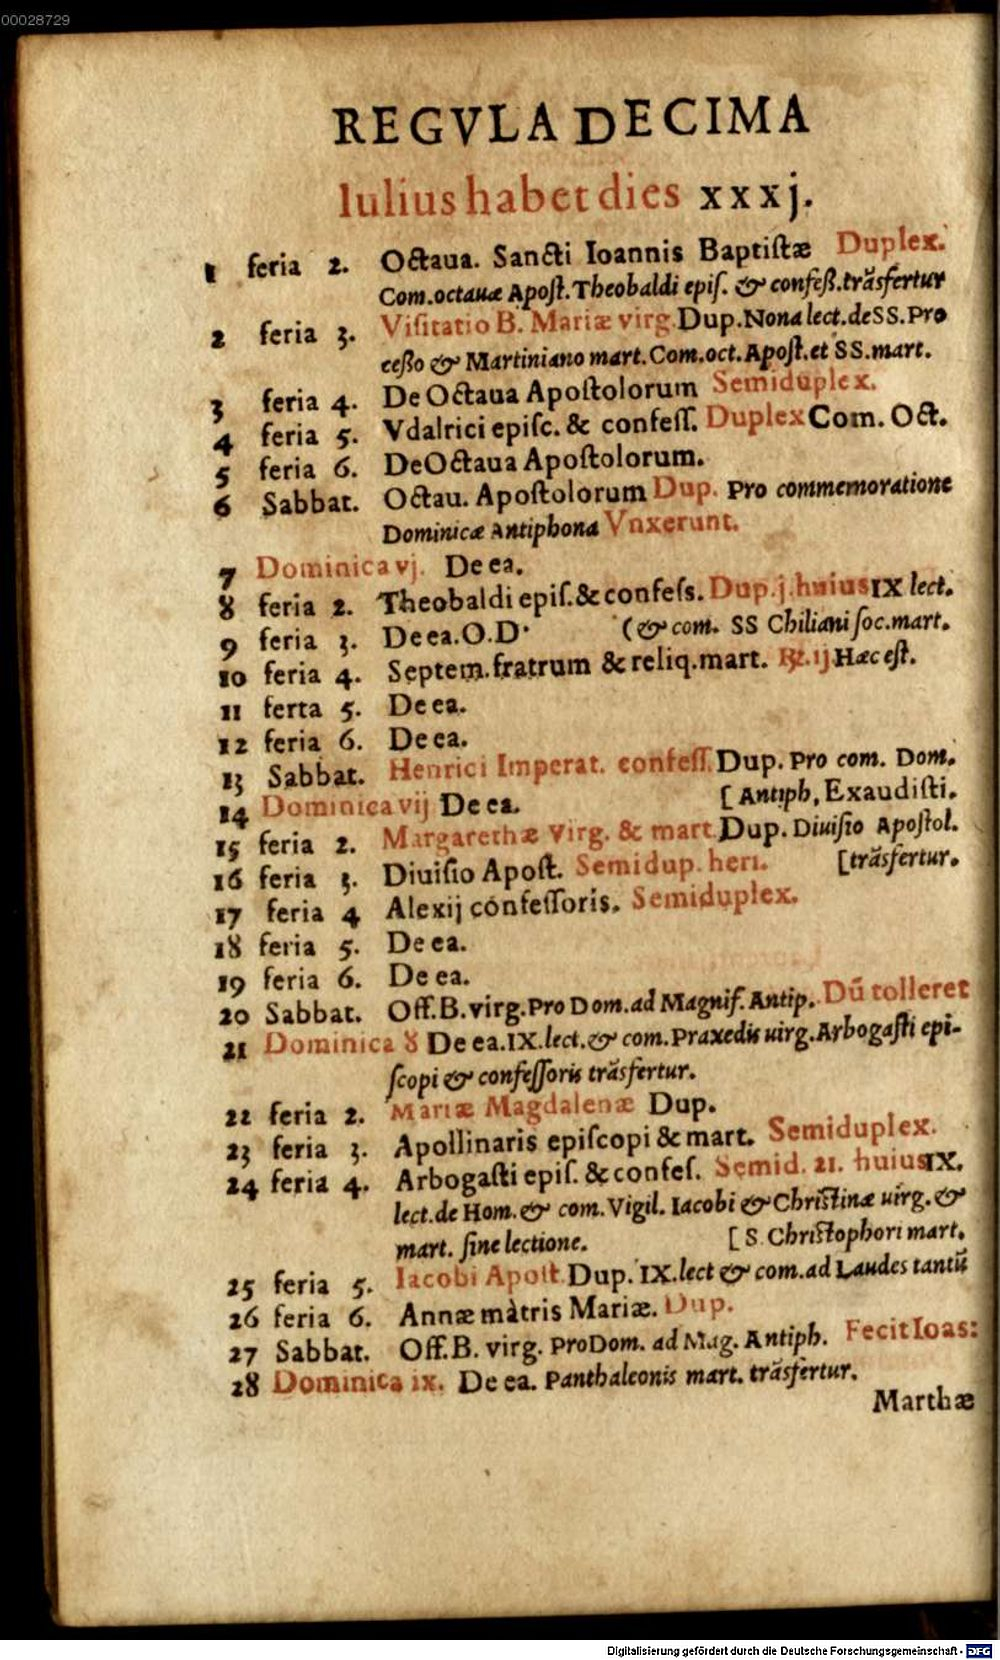 00028729
REGVLA DECIMA
Iulius habet dies xxxj.
1 feria 2. Octaua. Sancti Ioannis Baptiſtæ Duplex.
Com. octauæ Apoſt. Theobaldi epiſ. & confeß. trāsfertur
2 feria 3. Viſitatio B. Mariæ virg. Dup. Nona lect. de SS. Pro
ceßo & Martiniano mart. Com. oct. Apoſt. et SS. mart.
3 feria 4. De Octaua Apoſtolorum Semiduplex.
4 feria 5. Vdalrici epiſc. & confeſſ. Duplex Com. Oct.
5 feria 6. De Octaua Apoſtolorum.
6 Sabbat. Octau. Apoſtolorum Dup. Pro commemoratione
Dominicæ Antiphona Vnxerunt.
7 Dominica vj. De ea.
8 feria 2. Theobaldi epiſ. & confeſs. Dup. j. huius IX lect.
9 feria 3. De ea. O. D. (& com. SS Chiliani ſoc. mart.
10 feria 4. Septem. fratrum & reliq. mart. ℞. ij Hæc eſt.
11 ferta 5. De ea.
12 feria 6. De ea.
13 Sabbat. Henrici Imperat. confeſſ. Dup. Pro com. Dom.
[ Antiph, Exaudiſti.
14 Dominica vij De ea.
15 feria 2. Margarethæ virg. & mart. Dup. Diuiſio Apoſtol.
16 feria 3. Diuiſio Apoſt. Semidup. heri. [trāsfertur.
17 feria 4 Alexij confeſſoris. Semiduplex.
18 feria 5. De ea.
19 feria 6. De ea.
20 Sabbat. Off. B. virg. Pro Dom. ad Magnif. Antip. Dū tolleret
21 Dominica 8 De ea. IX. lect. & com. Praxedis uirg. Arbogaſti epi-
ſcopi & confeſſoris trāsfertur.
22 feria 2. Mariæ Magdalenæ Dup.
23 feria 3. Apollinaris epiſcopi & mart. Semiduplex.
24 feria 4. Arbogaſti epiſ. & confeſ. Semid. 21. huius IX.
lect. de Hom. & com. Vigil. Iacobi & Chriſtinæ uirg. &
mart. ſine lectione. [ S. Chriſtophori mart.
25 feria 5. Iacobi Apoſt. Dup. IX. lect & com. ad Laudes tantū
26 feria 6. Annæ màtris Mariæ. Dup.
27 Sabbat. Off. B. virg. Pro Dom. ad Mag. Antiph. Fecit Ioas:
28 Dominica ix. De ea. Panthaleonis mart. trāsfertur.
Marthæ
Digitalisierung gefördert durch die Deutsche Forschungsgemeinschaft - DFG